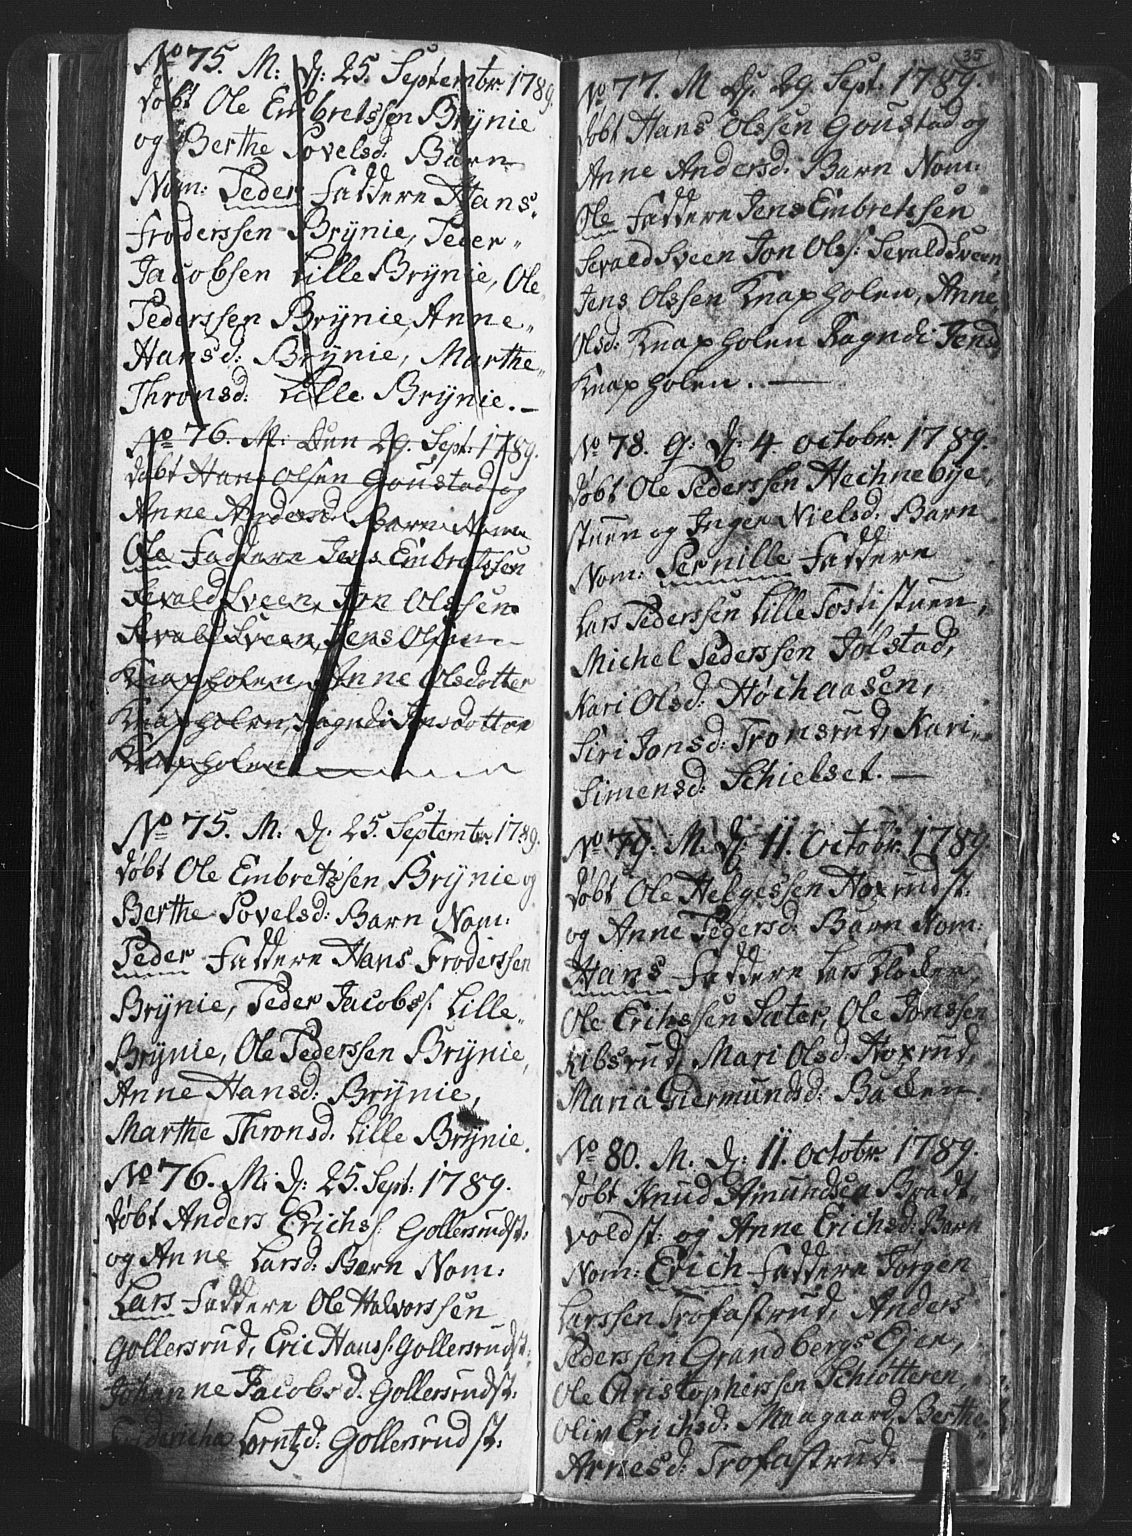 No 75. M: d: 25. Septembr 1789.
døbt Ole Embretssen Brÿnie
og Berthe Povelsd: Barn
Nom: Peder Faddere Hans
Froderssen Brÿnie, Peder
Jacobsen Lille Brÿnie, Ole
Pederssen Brÿnie Anne
Hansd: Brÿnie, Marthe
Thronsd: Lille Brÿnie.
No 76. M: Den 29. Sept: 1789.
døbt Hans Olsen Goustad og
Anne Andersd: Barn Nom:
Ole Faddere Jens Embretssen
Sevald Sveen, Jon Olssen
Sevald Sveen, Jens Olsen
Knapholen, Anne Olsdotter
Knapholen, Ragndi Jensdotter
Knapholen
No 75. M: d: 25. Septembr. 1789.
døbt Ole Embretssen Brÿnie og
Berthe Povelsd: Barn Nom:
Peder Faddere Hans Froderssen
Brÿnie, Peder Jacobs: Lille
Brÿnie, Ole Pederssen Brÿnie,
Anne Hansd: Brÿnie,
Marthe Thronsd. Lille Brÿnie.
No 76. M: d: 25. Sept: 1789.
døbt Anders Erichs: Gollersrudst:
og Anne Larsd: Barn Nom:
Lars Faddere Ole Halvorssen
Gollersrud, Eric Hanss: Gollersrudst:
Johanne Jacobsd. Gollersrudst:
Fridericha Lorntzd: Gollersrudst:
35
No 77. M d: 29. Sept: 1789.
døbt Hans Olssen Goustad og
Anne Andersd: Barn Nom:
Ole Faddere Jens Embretssen
Sevald Sveen Jon Olss: Sevald Sveen,
Jens Olssen Knapholen, Anne
Olsd: Knapholen Ragndi Jensd.
Knapholen.
No 78. G: d: 4. octobr 1789.
døbt Ole Pederssen Hechnebye
stuen og Inger Nielsd: Barn
Nom: Pernille Faddere
Lars Pederssen Lille Tostistuen,
Michel Pederssen Jølstad,
Kari Olsd: Høichaasen,
Siri Jonsd: Tronsrud, Kari
Simensd: Schielset.
No 79. M. d: 11. Octobr. 1789
døbt Ole Helgessen Hoxrudst:
og Anne Pedersd: Barn Nom:
Hans Faddere Lars Klocker,
Ole Erichssen Sater, Ole Jonssen
Ribsrud, Mari Olsd. Hoxrud,
Maria Giermundsd: Backen.
No 80. M. d: 11. octobr. 1789.
døbt Knud Amundsen Bradt
voldst: og Anne Erichsd: Barn
Nom: Erich Faddere Jørgen
Larssen Trofastrud, Anders
Pederssen Grandbergs Ejer,
Ole Christopherssen Schiøtteren
Oliv Erichsd: Maagaard, Berthe
Arnesd: Trofastrud.